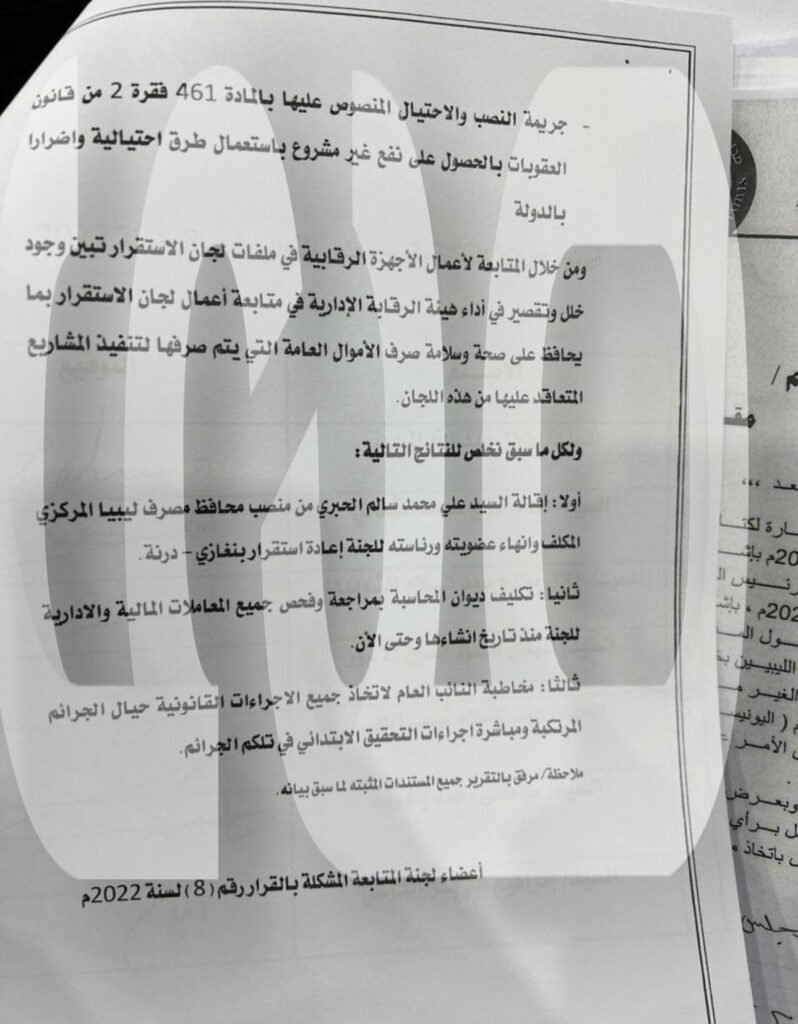 - جريمة النصب والاحتيال المنصوص عليها بالمادة 461 فقرة 2 من قانون
العقوبات بالحصول على نفع غير مشروع باستعمال طرق احتيالية واضرارا
بالدولة
ومن خلال المتابعة لأعمال الأجهزة الرقابية في ملفات لجان الاستقرار تبين وجود
خلل وتقصير في أداء هيئة الرقابة الإدارية في متابعة أعمال لجان الاستقرار بما
يحافظ على صحة وسلامة صرف الأموال العامة التي يتم صرفها لتنفيذ المشاريع
المتعاقد عليها من هذه اللجان.
ولكل ما سبق نخلص للنتائج التالية:
أولا: إقالة السيد علي محمد سالم الحبري من منصب محافظ مصرف ليبيا المركزي
المكلف وانهاء عضويته ورئاسته للجنة إعادة استقرار بنغازي - درنة.
ثانيا: تكليف ديوان المحاسبة بمراجعة وفحص جميع المعاملات المالية والادارية
للجنة منذ تاريخ انشاءها وحتى الأن.
ثالثا: مخاطبة النائب العام لاتخاذ جميع الاجراءات القانونية حيال الجرائم
المرتكبة ومباشرة اجراءات التحقيق الابتدائي في تلكم الجرائم.
ملاحظة/ مرفق بالتقرير جميع المستندات المثبته لما سبق بيانه.
أعضاء لجنة المتابعة المشكلة بالقرار رقم (8) لسنة 2022م